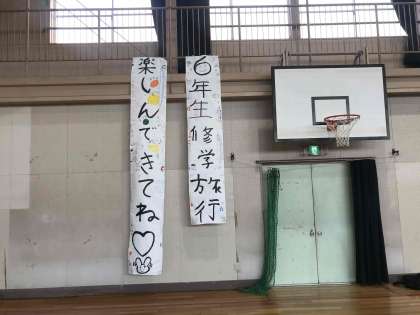 6年生修学旅行
楽しんできてね♡